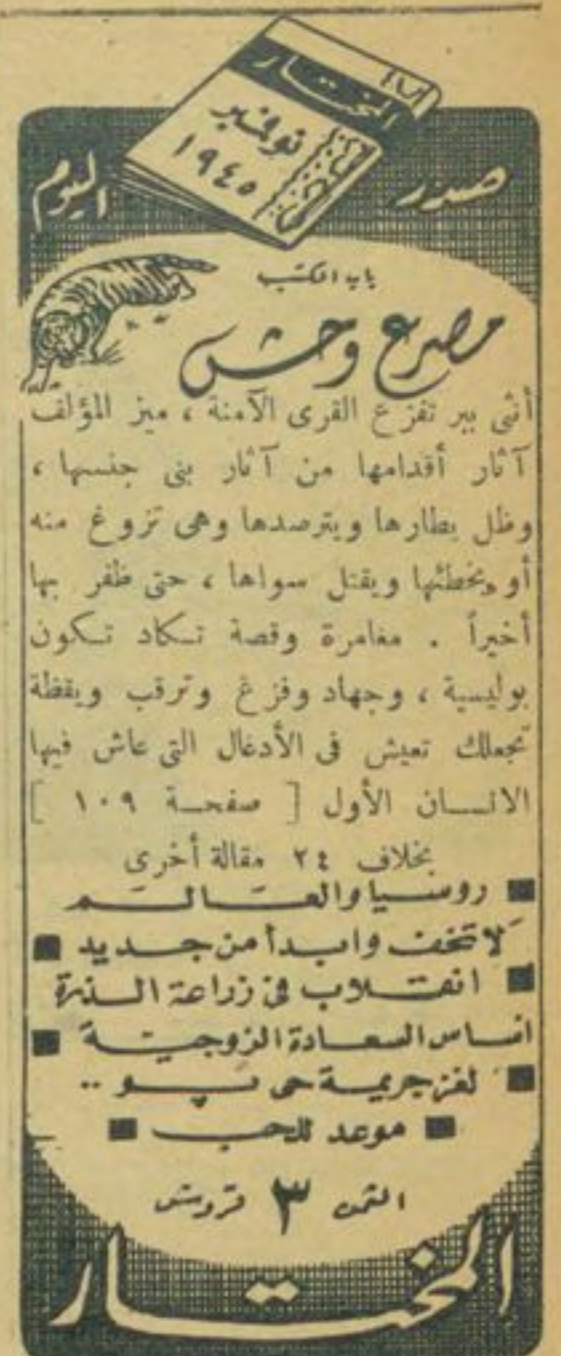 المختار
نوفمبر
١٩٤٥
صدر اليوم
باب الكتب
مصرع وحش
أنثى ببر تفزع القرى الآمنة ، ميز المؤلف
آثار أقدامها من آثار بنى جنسها ،
وظل يطارها ويترصدها وهى تزوغ منه
أو يخطئها ويقتل سواها ، حتى ظفر بها
أخيراً . مغامرة وقصة تكاد تكون
بوليسية ، وجهاد وفزع وترقب ويقظة
تجعلك تعيش فى الأدغال التى عاش فيها
الانسان الأول [ صفحة ١٠٩ ]
بخلاف ٢٤ مقالة أخرى
■ روسيا والعالم
لا تخف وابدأ من جديد ■
■ انقلاب فى زراعة الذرة
اساس السعادة الزوجية ■
■ لغز جريمة حى سو ..
■ موعد للحب ■
الثمن ٣ قروش
المختار